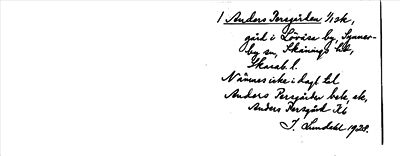 1 Anders Persgården 1/1 sk,
gård i Lövåsa by, Synner-
by sn, Skånings hd,
Skarab. l.
Nämnes icke i dagl. tal
Anders Persgården bet. ek,
Anders Persgård
I. Lundahl 1928.